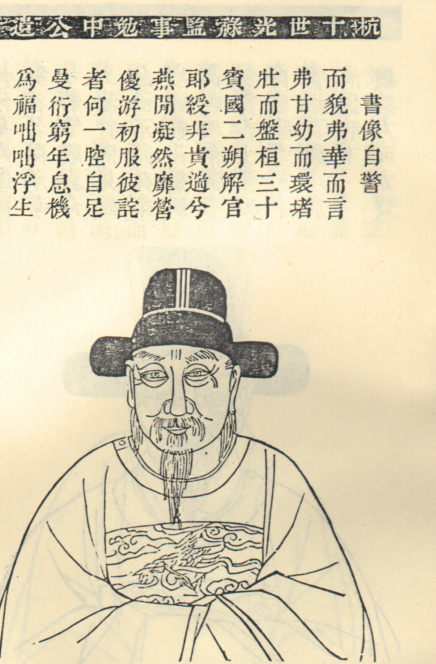 杭十世光祿監事勉中公遺
書像自警
而貌弗華而言
弗甘幼而環堵
壯而盤桓三十
賓國二朔解官
郎綬非貴適兮
燕閒凝然靡營
優游初服彼詫
者何一腔自足
曼衍窮年息機
爲福咄咄浮生